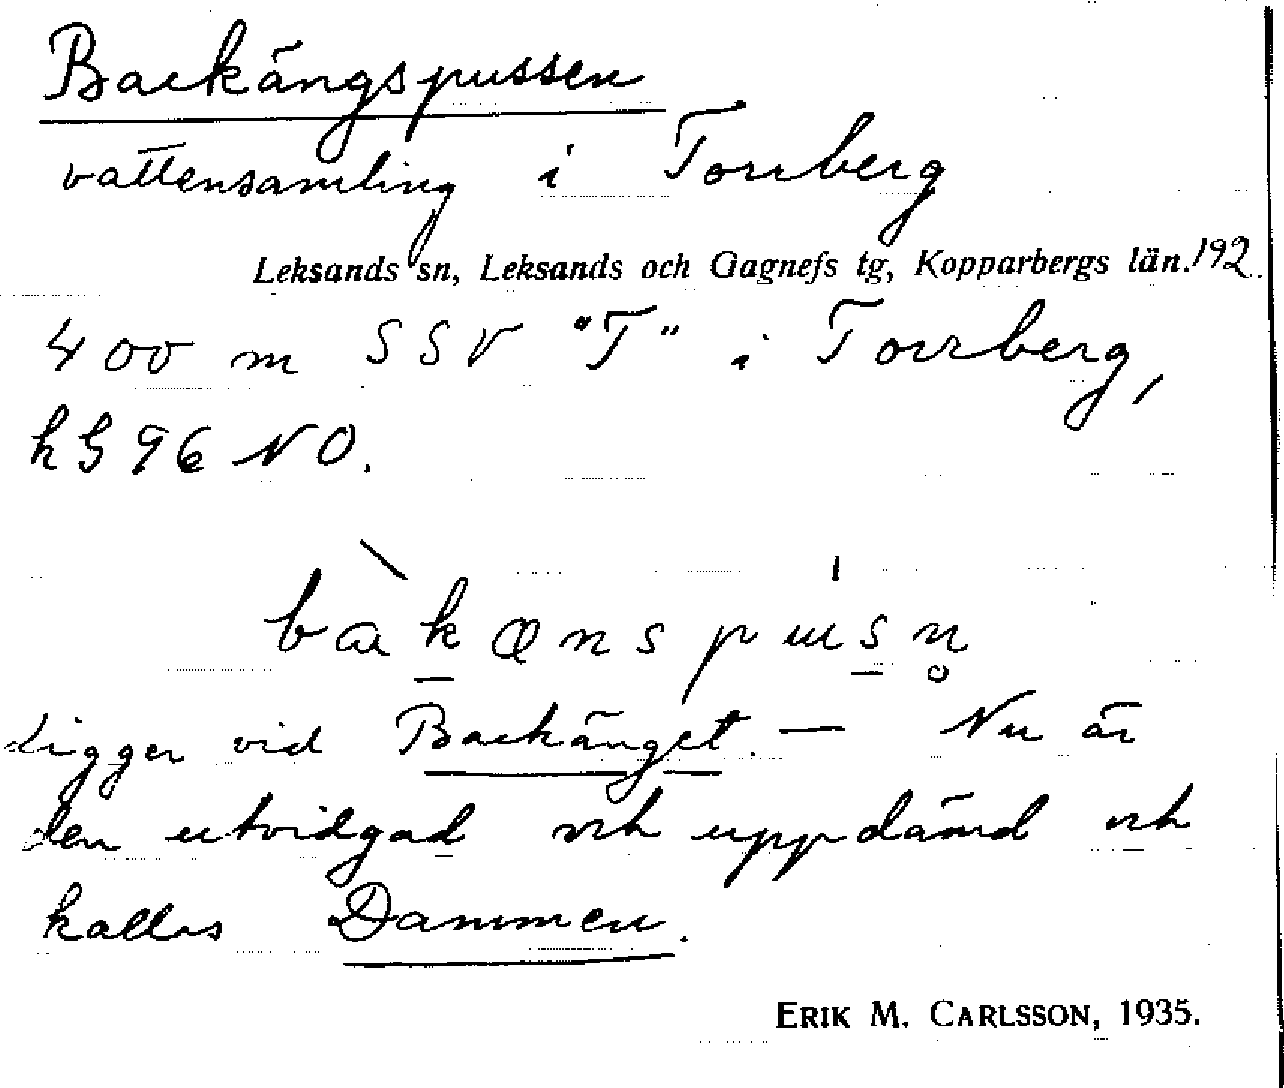 Backängspussen
vattensamling i Torrberg
Leksands sn, Leksands och Gagnefs tg, Kopparbergs län. 192.
400 m SSV "T" i Torrberg,
h§ 96 NO.
bakænspusn
Ligger vid Backänget. — Nu är
den utvidgad och uppdämd och
kallas Dammen.
ERIK M. CARLSSON, 1935.